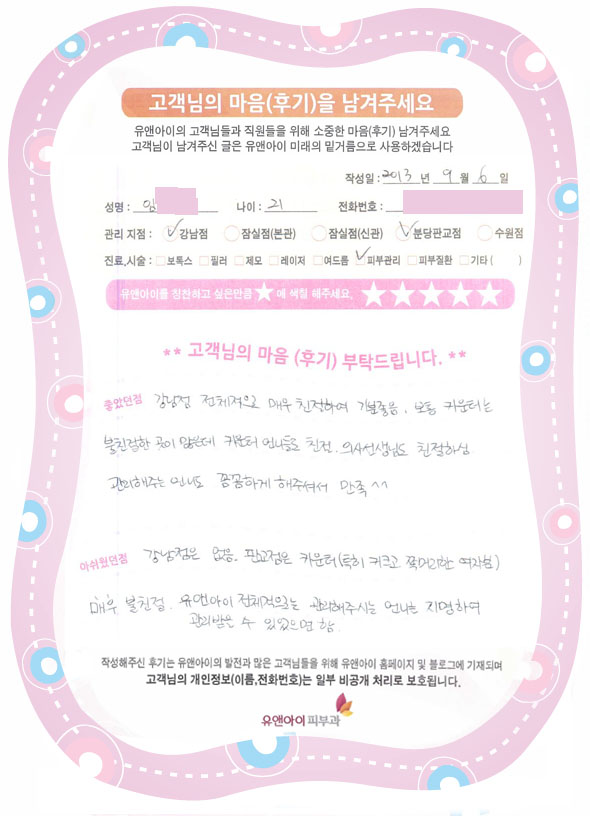 고객님의 마음(후기)을 남겨주세요
유앤아이의 고객님들과 직원들을 위해 소중한 마음(후기) 남겨주세요
고객님이 남겨주신 글은 유앤아이 미래의 밑거름으로 사용하겠습니다
작성일 : 2013 년 9 월 6 일
성명 : 임 나이 : 21 전화번호 :
관리 지점 : 강남점 잠실점(본관) 잠실점(신관) 분당판교점 수원점
진료,시술 : 보톡스 필러 제모 레이저 여드름 피부관리 피부질환 기타 ( )
유앤아이를 칭찬하고 싶은만큼 ★ 에 색칠 해주세요. ★★★★★
** 고객님의 마음 (후기) 부탁드립니다. **
좋았던점 강남점 전체적으로 매우 친절하여 기분좋음, 보통 카운터는
불친절한 곳이 많은데 카운터 언니들도 친절, 의사선생님도 친절하심
관리해주는 언니도 꼼꼼하게 해주셔서 만족 ^^
아쉬웠던점 강남점은 없음. 판교점은 카운터(특히 키크고 쪽머리한 여자분)
매우 불친절. 유앤아이 전체적으로는 관리해주시는 언니를 지명하여
관리받을 수 있었으면 함.
작성해주신 후기는 유앤아이의 발전과 많은 고객님들을 위해 유앤아이 홈페이지 및 블로그에 기재되며
고객님의 개인정보(이름,전화번호)는 일부 비공개 처리로 보호됩니다.
유앤아이피부과